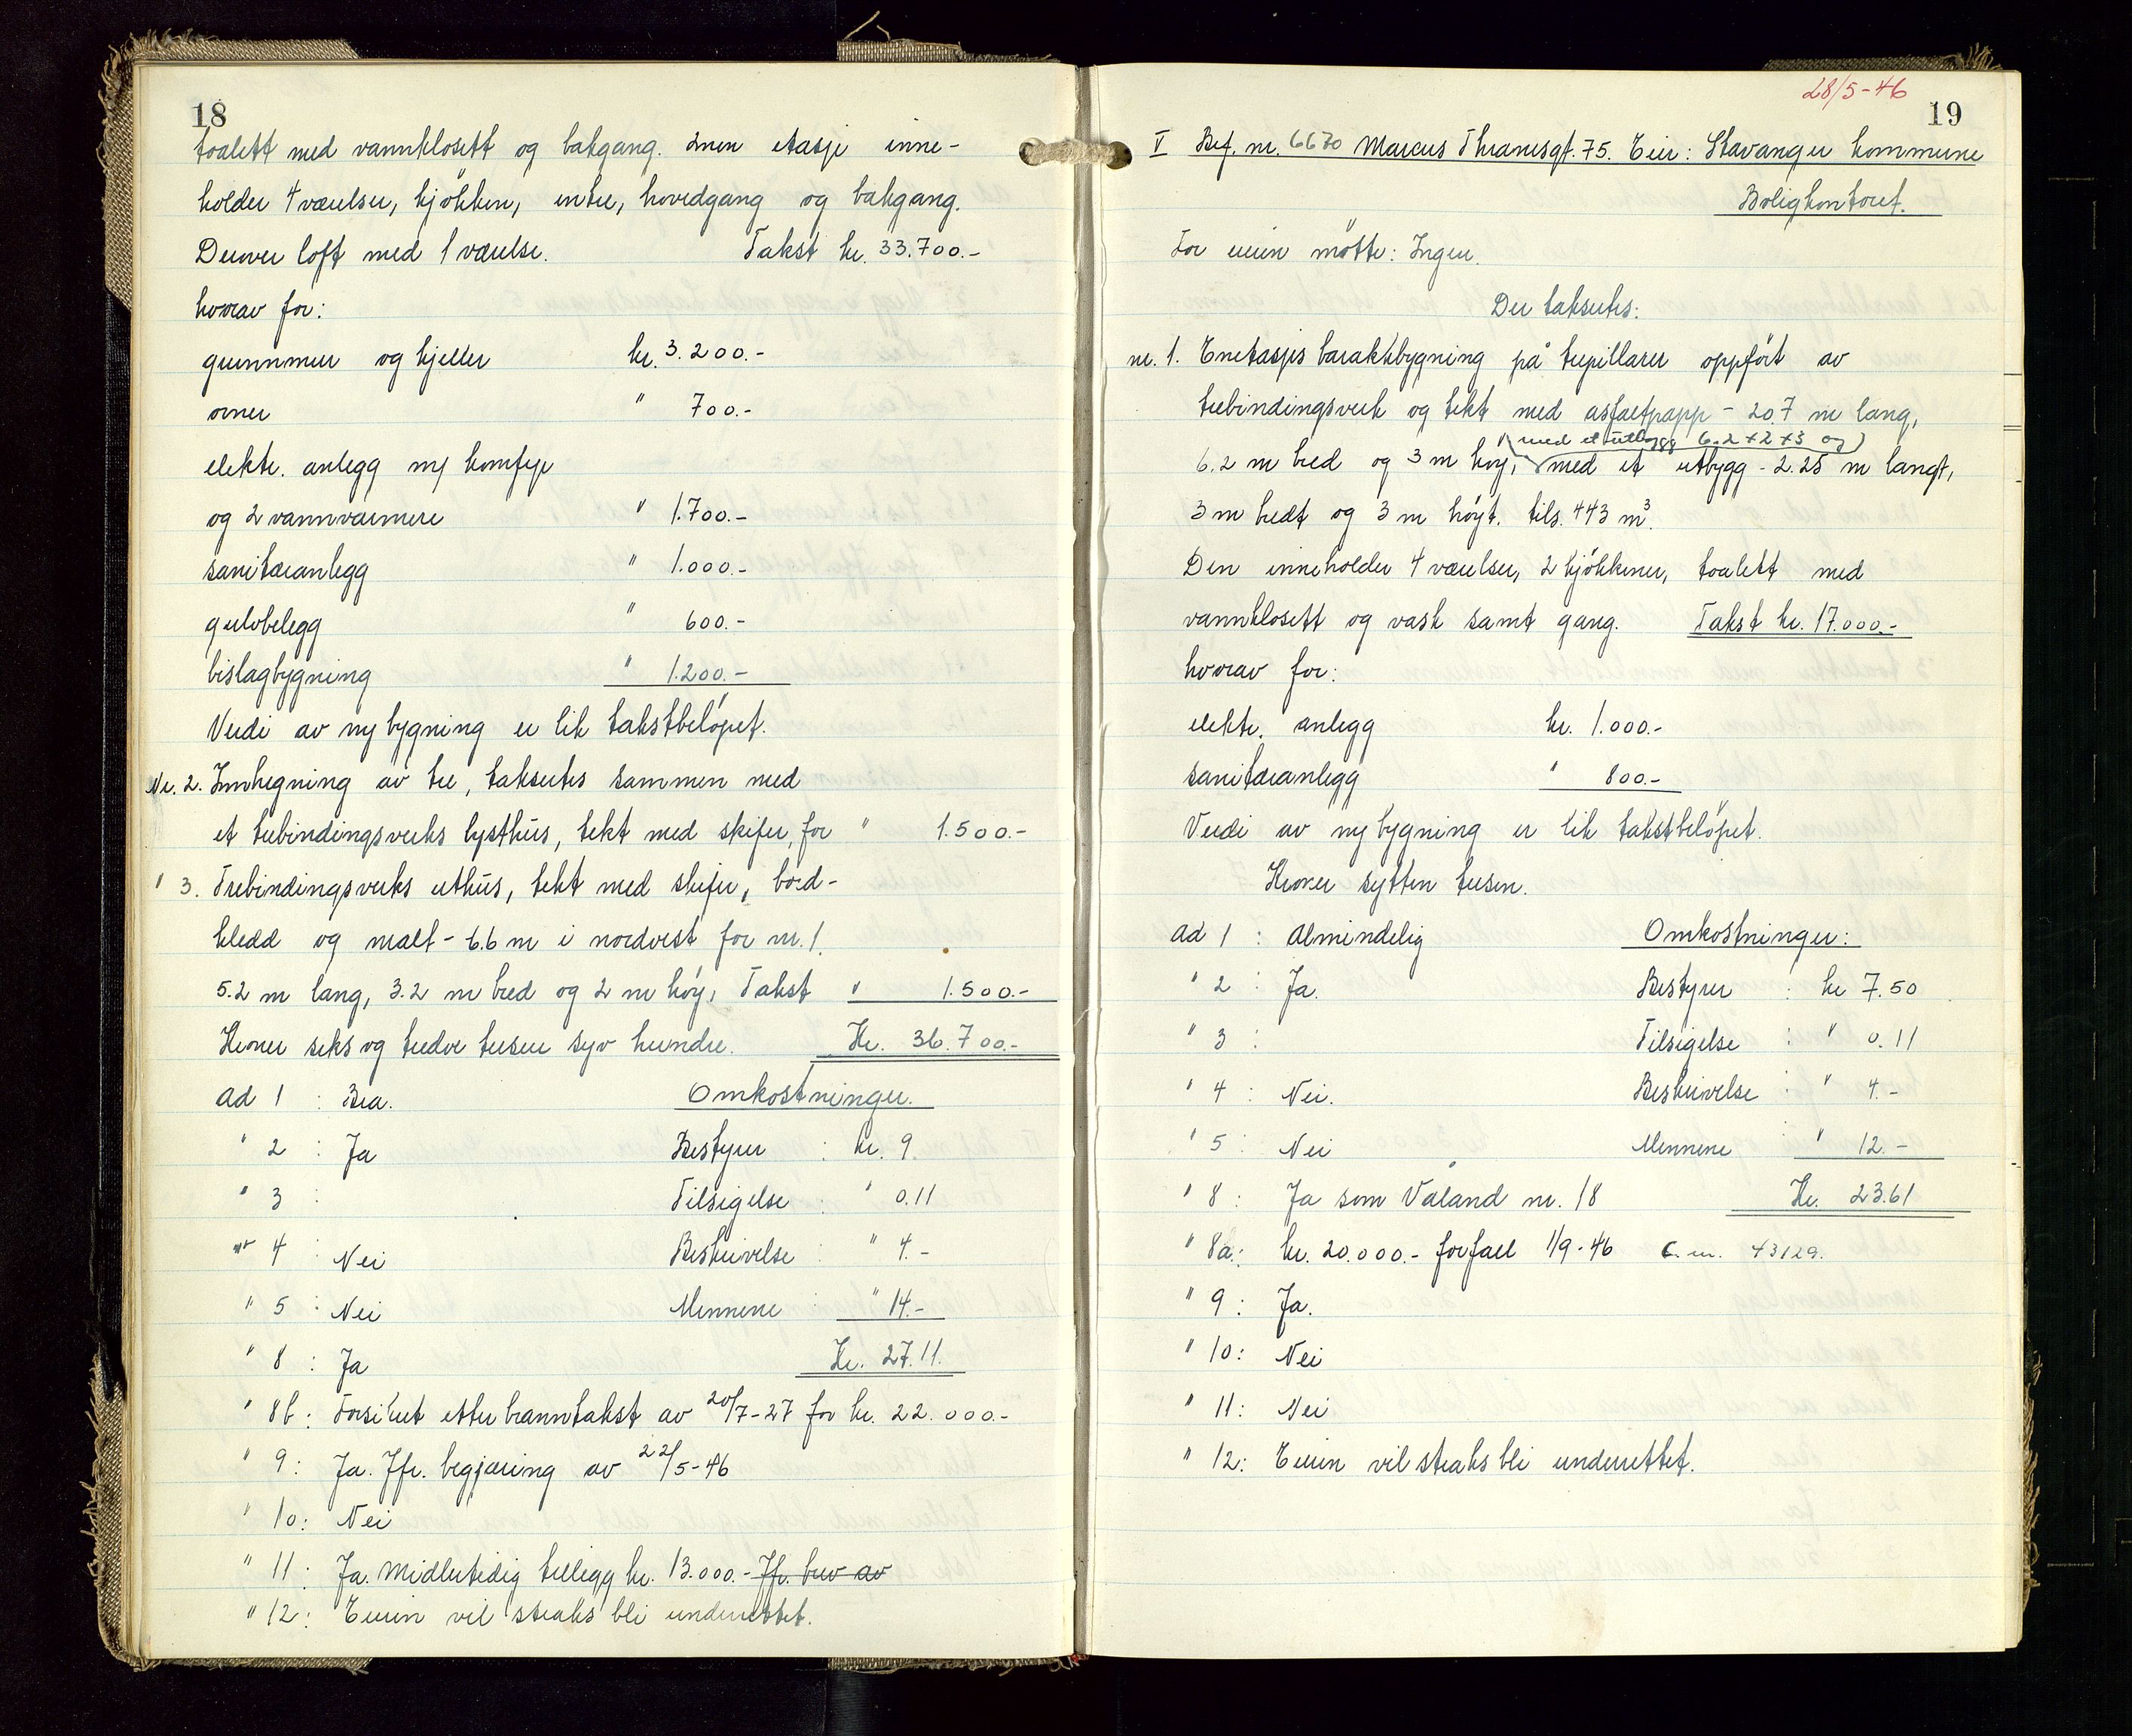 18
toalett med vannklosett og bakgang. 2nen etasje inne-
holder 4 værelser, kjökken, entre, hovedgang og bakgang.
Derover loft med 1 værelse. Takst kr. 33.700.-
hvorav for:
grunnmur og kjeller kr. 3.200.-
ovner " 700.-
elektr. anlegg m/ komfyr
og 2 vannvarmere " 1.700.-
sanitæranlegg " 1.000.-
gulvbelegg " 600.-
bislagbygning " 1.200.-
Verdi av ny bygning er lik takstbelöpet.
Nr. 2. Innhegning av tre, takseres sammen med
et trebindingsverks lysthus, tekt med skifer, for " 1.500.-
" 3. Trebindingsverks uthus, tekt med skifer, bord-
kledd og malt - 6.6 m i nordvest for nr. 1.
5.2 m lang, 3.2 m bred og 2 m höy, Takst " 1.500.-
Kroner seks og tredve tusen syv hundre. Kr. 36.700.-
ad 1 : Bra. Omkostninger.
" 2 : Ja Bestyrer : kr. 9.
" 3 : Tilsigelse : " 0.11
" 4 : Nei Beskrivelse : " 4.-
" 5 : Nei Mennene : " 14.-
" 8 : Ja Kr. 27.11.
" 8b : Forsikret etter branntakst av 20/7-27 for kr. 22.000.-
" 9 : Ja. Jfr. begjæring av 22/5-46
" 10 : Nei
" 11 : Ja. Midlertidig tillegg kr. 13.000.- Jfr. brev av
" 12 : Eieren vil straks bli underrettet.
28/5-46
19
V Bef. nr. 6670 Marcus Thranesgt. 75. Eier: Stavanger kommune
Boligkontoret.
For eieren mötte: Ingen.
Der takseres:
nr. 1. Enetasjes barakkbygning på trepillarer oppfört av
trebindingsverk og tekt med asfaltpapp - 20.7 m lang,
med et utbygg 6.2+2+3 og
6.2 m bred og 3 m höy, med et utbygg - 2.25 m langt,
3 m bredt og 3 m höyt. tils. 443 m³.
Den inneholder 4 værelser, 2 kjökkener, toalett med
vannklosett og vask samt gang. Takst kr. 17.000.-
hvorav for:
elektr. anlegg kr. 1.000.-
sanitæranlegg " 800.-
Verdi av ny bygning er lik takstbelöpet.
Kroner sytten tusen.
ad 1 : Almindelig Omkostninger:
" 2 : Ja. Bestyrer : kr 7.50
" 3 : Tilsigelse : " 0.11
" 4 : Nei. Beskrivelse : " 4.-
" 5 : Nei Mennene : " 12.-
" 8 : Ja som Våland nr. 18 Kr. 23.61
" 8a : kr. 20.000.- forfall 1/9-46 43129.
" 9 : Ja.
" 10 : Nei
" 11 : Nei
" 12 : Eieren vil straks bli underrettet.